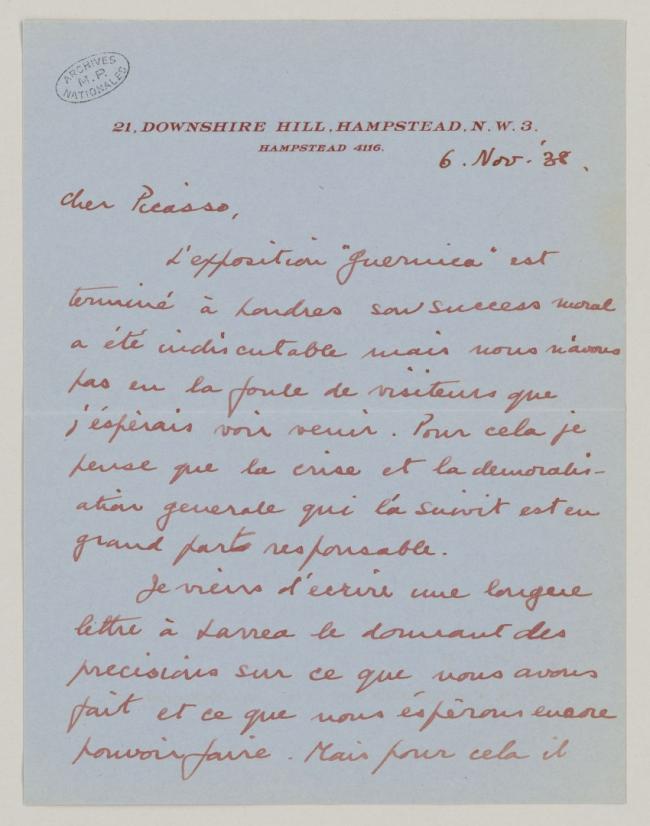 ARCHIVES
M.P.
NATIONALES
21, DOWNSHIRE HILL, HAMPSTEAD, N.W.3.
HAMPSTEAD 4116.
6. Nov. '38.
cher Picasso,
L'exposition "Guernica" est
terminé à Londres son success moral
a été indiscutable mais nous n'avons
pas eu la foule de visiteurs que
j'éspèrais voir venir. Pour cela je
pense que la crise et la demoralis-
ation generale qui l'a suivit est en
grand part responsable.
Je viens d'écrire une longue
lettre à Larrea le donnant des
precisions sur ce que nous avons
fait et ce que nous éspèrons encore
pouvoir faire. Mais pour cela il